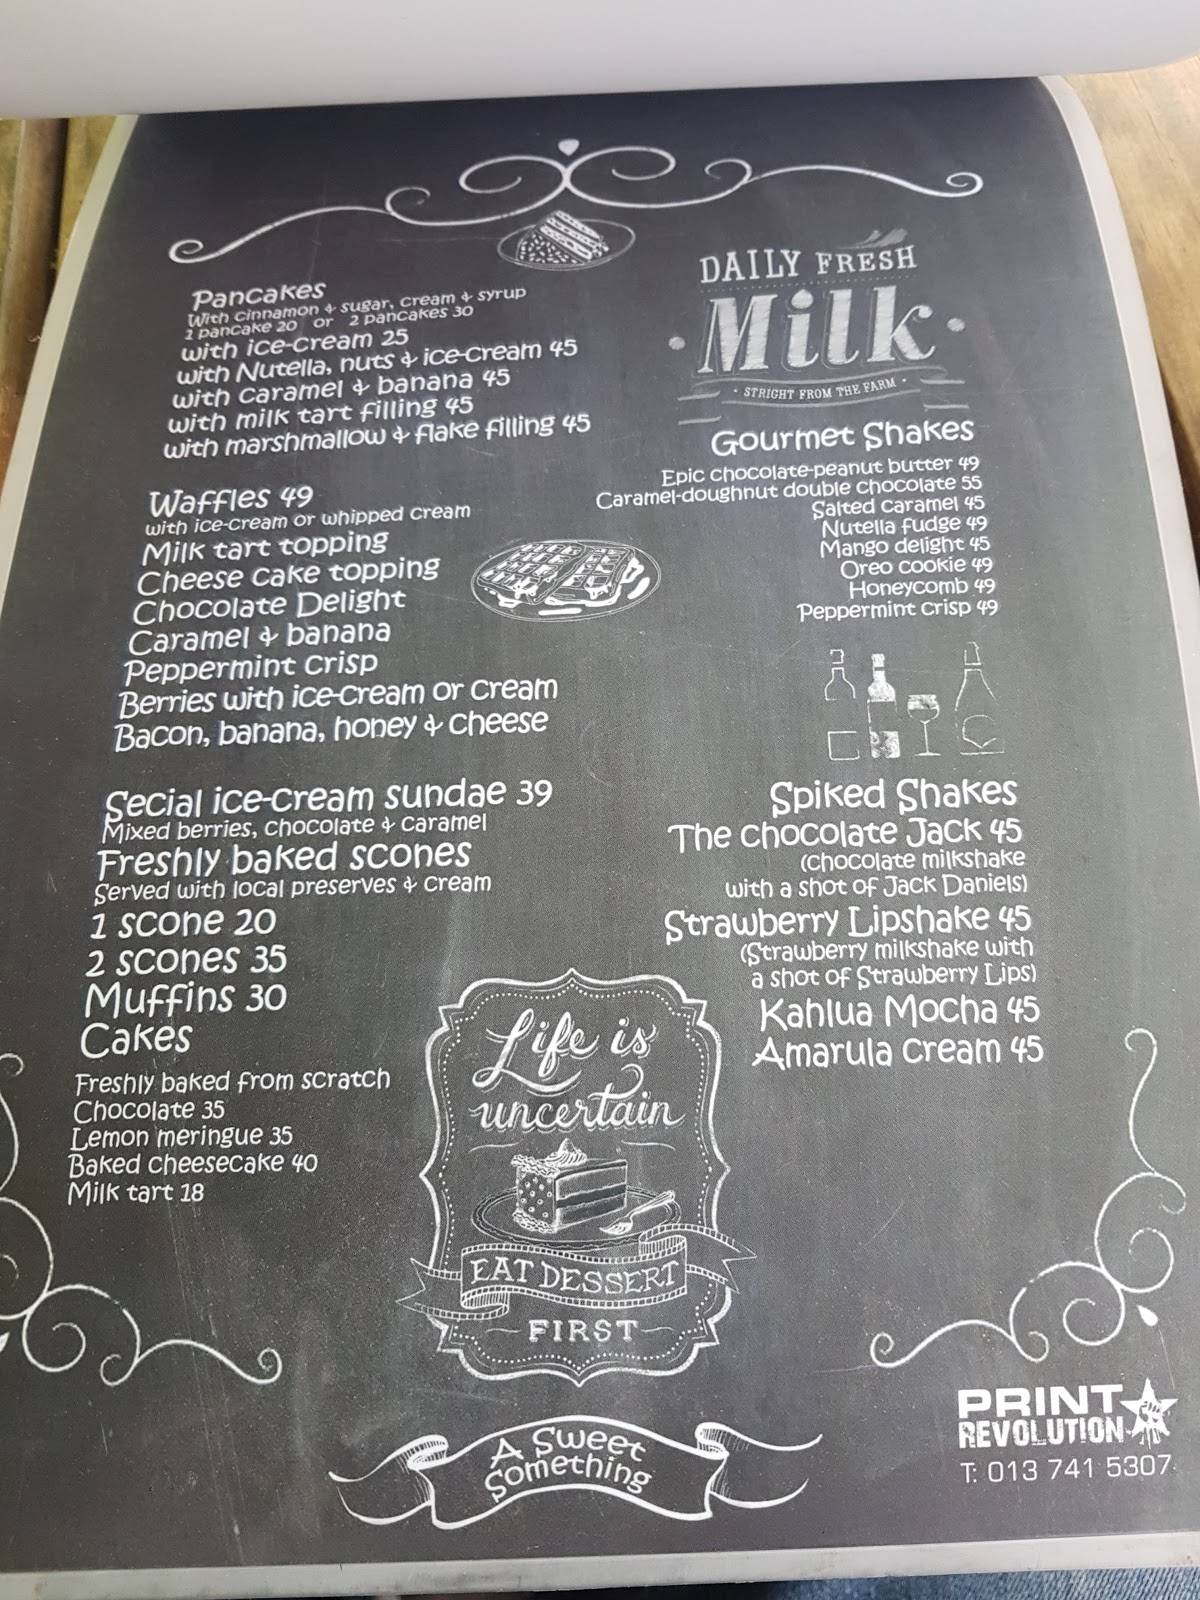 Pancakes
With cinnamon & sugar, cream & syrup
1 pancake 20 or 2 pancakes 30
with ice-cream 25
with Nutella, nuts & ice-cream 45
with caramel & banana 45
with milk tart filling 45
with marshmallow & flake filling 45
Waffles 49
with ice-cream or whipped cream
Milk tart topping
Cheese cake topping
Chocolate Delight
Caramel & banana
Peppermint crisp
Berries with ice-cream or cream
Bacon, banana, honey & cheese
Secial ice-cream sundae 39
Mixed berries, chocolate & caramel
Freshly baked scones
Served with local preserves & cream
1 scone 20
2 scones 35
Muffins 30
Cakes
Freshly baked from scratch
Chocolate 35
Lemon meringue 35
Baked cheesecake 40
Milk tart 18
DAILY FRESH
Milk
STRIGHT FROM THE FARM
Gourmet Shakes
Epic chocolate-peanut butter 49
Caramel-doughnut double chocolate 55
Salted caramel 45
Nutella fudge 49
Mango delight 45
Oreo cookie 49
Honeycomb 49
Peppermint crisp 49
Spiked Shakes
The chocolate Jack 45
(chocolate milkshake
with a shot of Jack Daniels)
Strawberry Lipshake 45
(Strawberry milkshake with
a shot of Strawberry Lips)
Kahlua Mocha 45
Amarula cream 45
Life is
uncertain
EAT DESSERT
FIRST
A Sweet
Something
PRINT
REVOLUTION
T: 013 741 5307